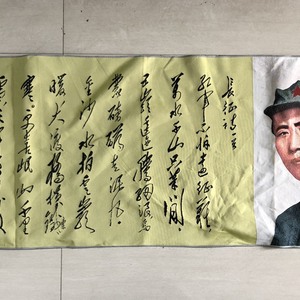 长征诗
红军不怕远征难
万水千山只等闲
五岭逶迤腾细浪乌
蒙磅礴走泥丸
金沙水拍云崖
暖大渡桥横铁
寒更喜岷山千里